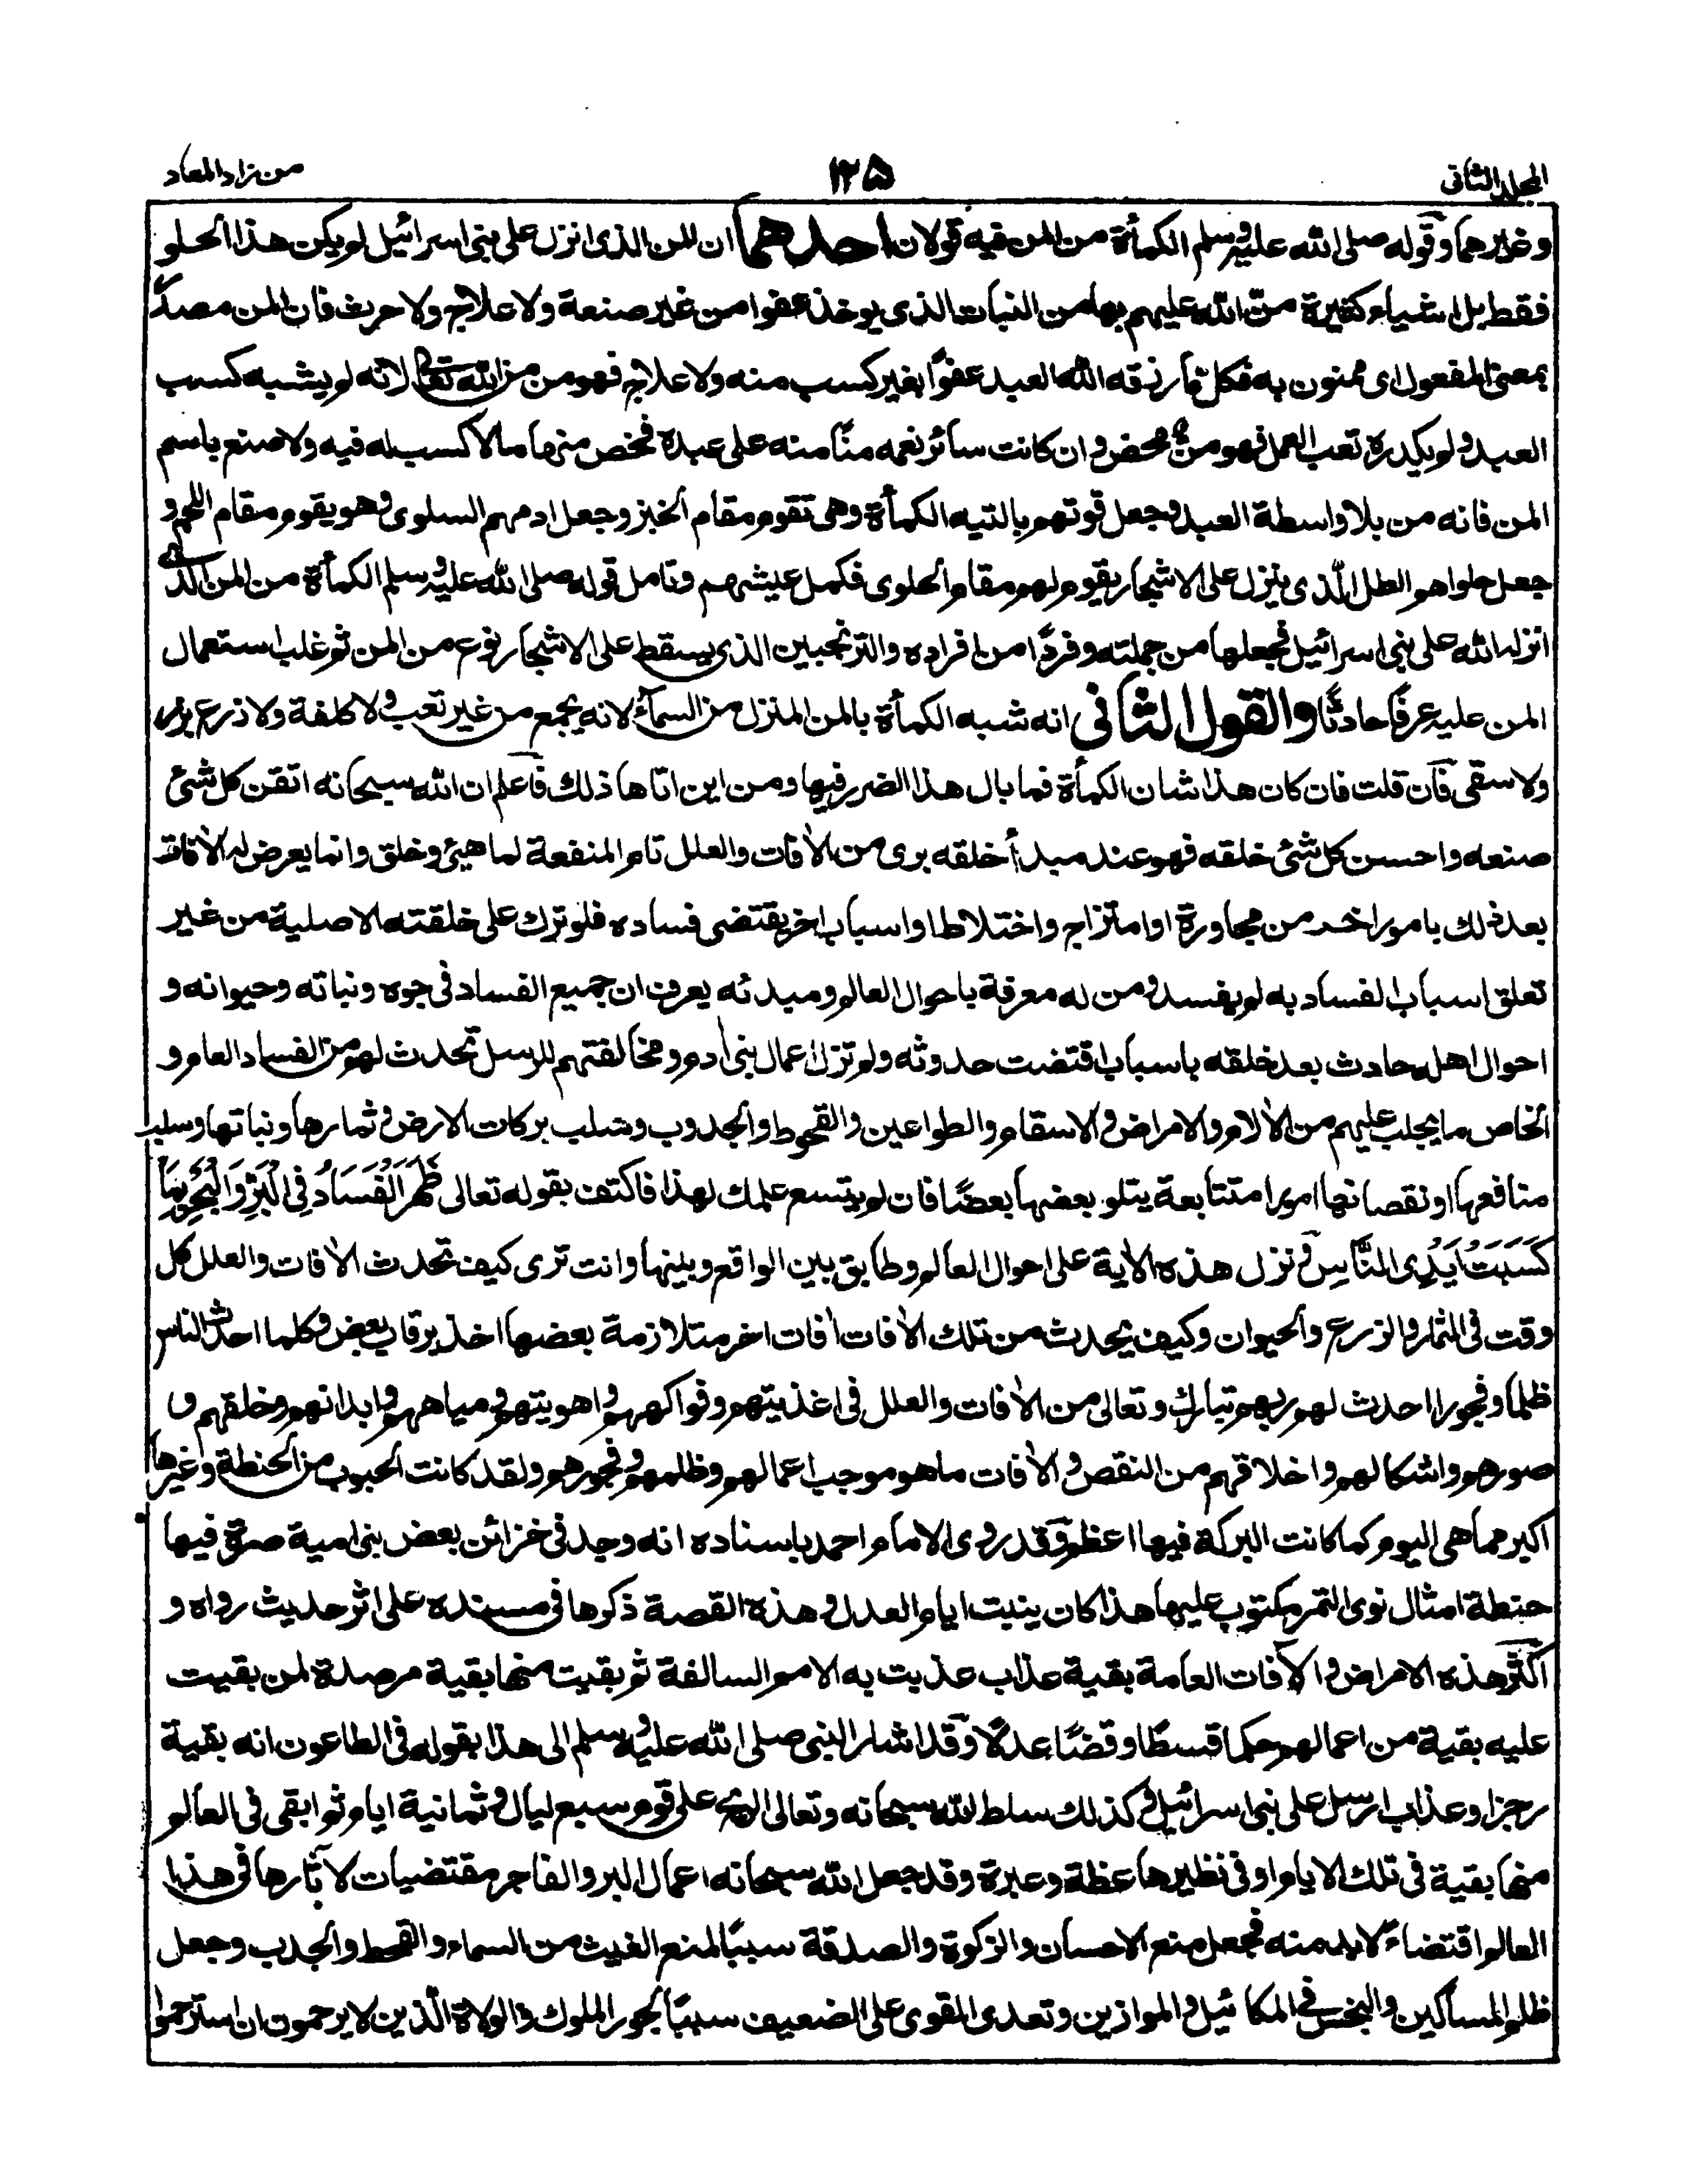 المجلد الثانى
١٢٥
من زاد المعاد
وغيرهما وقوله صلى الله عليه وسلم الكمأة من المن فيه قولان احدهما ان المن الذى انزل على بنى اسرائيل لم يكن هذا الحلو
فقط بل اشياء كثيرة منّ الله عليهم بها من النبات الذى يوخذ عفوا من غير صنعة ولا علاج ولا حرث فان المن مصدر
بمعنى المفعول اى ممنون به فكل ما رزقه الله العبد عفوًا بغير كسب منه ولا علاج فهو من من الله تعالى لانه لم يشبه كسب
العبد ولم يكدره تعب العمل فهو من محض وان كانت سائر نعمه منًا منه على عبده فخص منها ما لا كسب له فيه ولا صنع باسم
المن فانه من بلا واسطة العبد وجعل قوتهم بالتيه الكمأة وهى تقوم مقام الخبز وجعل ادمهم السلوى وهو يقوم مقام اللحم و
جعل حلواهم الطل الذى ينزل على الاشجار يقوم لهم مقام الحلوى فكمل عيشهم وتامل قوله صلى الله عليه وسلم الكمأة من المن الذى
انزله الله على بنى اسرائيل فجعلها من جملته وفردًا من افراده والترنجبين الذى يسقط على الاشجار نوع من المن ثم غلب استعمال
المن عليه عرفًا حادثًا والقول الثانى انه شبه الكمأة بالمن المنزل من السماء لانه يجمع من غير تعب ولا كلفة ولا ذرع بزر
ولا سقى فان قلت فان كان هذا شان الكمأة فما بال هذا الضرر فيها ومن اين اتاها ذلك فاعلم ان الله سبحانه اتقن كل شئ
صنعه واحسن كل شئ خلقه فهو عند مبدأ خلقه برى من الآفات والعلل تام المنفعة لما هيئ وخلق وانما يعرض له الآفات
بعد ذلك بامور اخر من مجاورة او امتزاج واختلاط او اسباب اخر يقتضى فساده فلو ترك على خلقته الاصلية من غير
تعلق اسباب الفساد به لم يفسد ومن له معرفة باحوال العالم ومبدئه يعرف ان جميع الفساد فى جوه ونباته وحيوانه و
احوال اهله حادث بعد خلقه باسباب اقتضت حدوثه ولم تزل اعمال بنى ادم ومخالفتهم للرسل تحدث لهم من الفساد العام و
الخاص ما يجلب عليهم من الآلام والامراض والاسقام والطواعين والقحوط والجدوب وسلب بركات الارض وثمارها ونباتها وسلب
منافعها او نقصانها امورا متتابعة يتلو بعضها بعضًا فان لم يتسع علمك لهذا فاكتف بقوله تعالى ظَهَرَ الْفَسَادُ فِى الْبَرِّ وَالْبَحْرِ بِمَا
كَسَبَتْ اَيْدِى النَّاسِ ونزل هذه الآية على احوال العالم وطابق بين الواقع وبينها وانت ترى كيف تحدث الآفات والعلل كل
وقت فى الثمار والزرع والحيوان وكيف يحدث من تلك الآفات آفات اخر متلازمة بعضها اخذ برقاب بعض وكلما احدث الناس
ظلما وفجورا احدث لهم ربهم تبارك وتعالى من الآفات والعلل فى اغذيتهم وفواكههم واهويتهم ومياههم وابدانهم وخلقهم و
صورهم واشكالهم واخلاقهم من النقص والآفات ما هو موجب اعمالهم وظلمهم وفجورهم ولقد كانت الحبوب من الحنطة وغيرها
اكبر مما هى اليوم كما كانت البركة فيها اعظم وقد روى الامام احمد باسناده انه وجد فى خزائن بعض بنى امية صرة فيها
حنطة امثال نوى التمر مكتوب عليها هذا كان ينبت ايام العدل وهذه القصة ذكرها فى مسنده على اثر حديث رواه و
اكثر هذه الامراض والآفات العامة بقية عذاب عذبت به الامم السالفة ثم بقيت منها بقية مرصدة لمن بقيت
عليه بقية من اعمالهم حكما قسطًا وقضًا عدلًا وقد اشار النبى صلى الله عليه وسلم الى هذا بقوله فى الطاعون انه بقية
رجز او عذاب ارسل على بنى اسرائيل وكذلك سلط الله سبحانه وتعالى الريح على قوم سبع ليال وثمانية ايام ثم ابقى فى العالم
منها بقية فى تلك الايام او فى نظيرها عظة وعبرة وقد جعل الله سبحانه اعمال البر والفاجر مقتضيات لآثارها فى هذا
العالم اقتضاء لا بد منه فجعل منع الاحسان والزكوة والصدقة سببًا لمنع الغيث من السماء والقحط والجدب وجعل
ظلم المساكين والبخس فى المكائيل والموازين وتعدى القوى على الضعيف سببًا لجور الملوك والولاة الذين لا يرحمون ان استرحموا